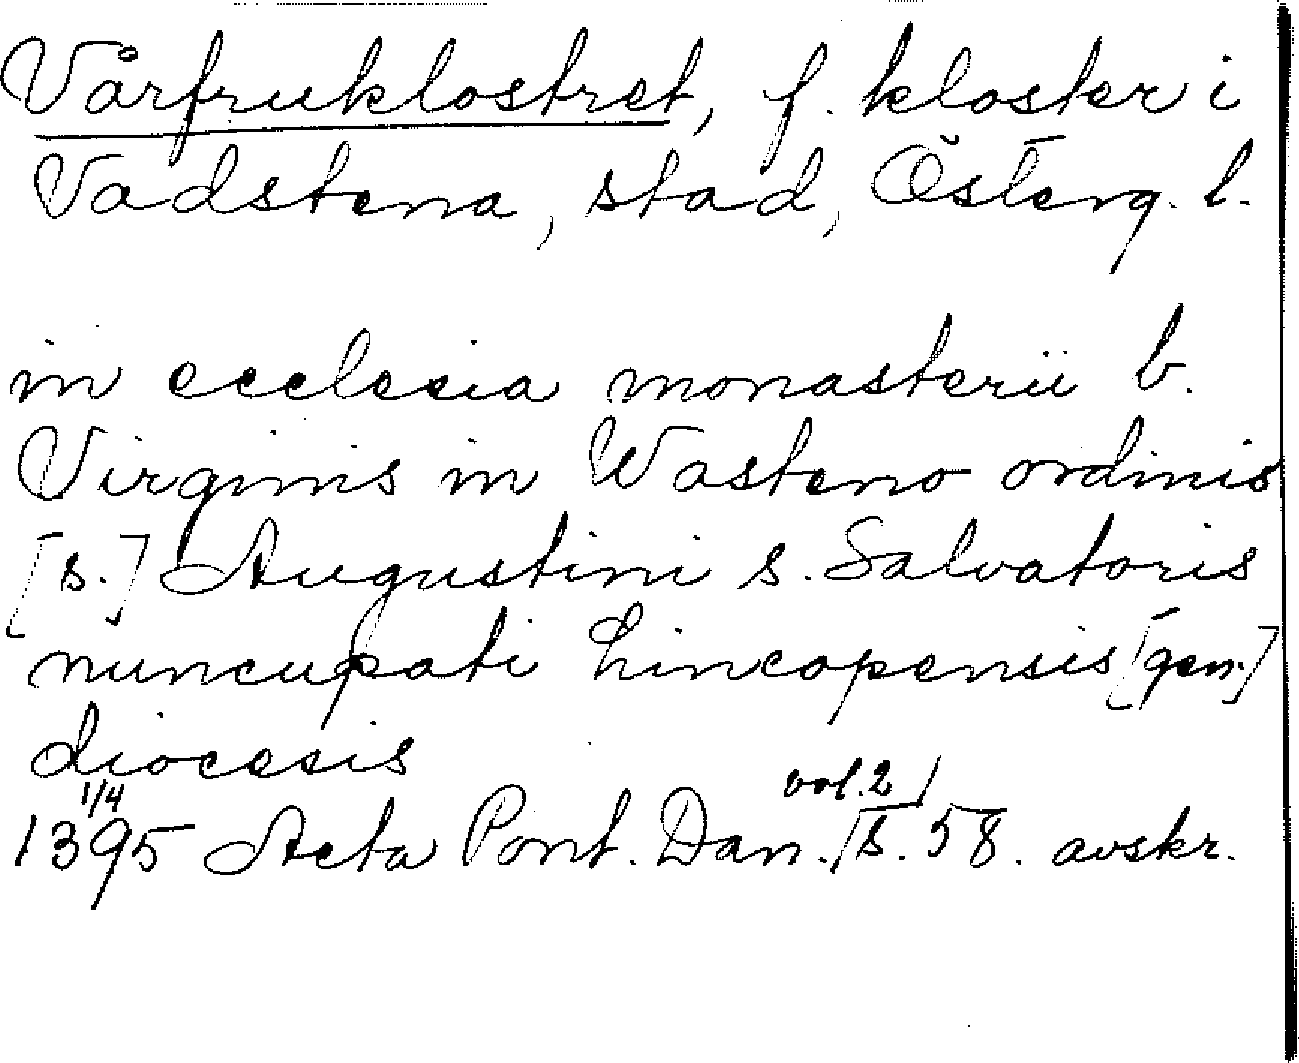 Vårfruklostret, f. kloster i
Vadstena, stad, Österg. l.
in ecclesia monasterii b.
Virginis in Wasteno ordinis
[s.] Augustini s. Salvatoris
nuncupati Lincopensis [gen.]
diocesis
1395 1/4 Acta Pont. Dan. vol. 2 s. 58. avskr.